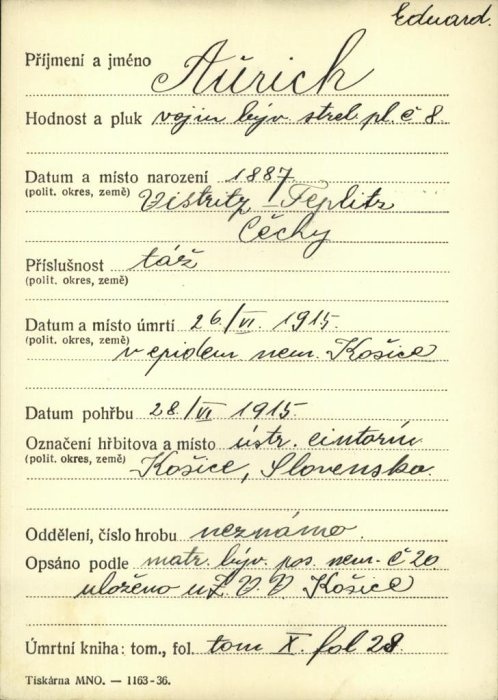 Eduard.
Příjmení a jméno Aürich
Hodnost a pluk vojín býv. střel. pl. č 8
Datum a místo narození 1887
(polit. okres, země) Vistritz – Teplitz
Čechy
Příslušnost táž
(polit. okres, země)
Datum a místo úmrtí 26/VI. 1915.
(polit. okres, země) v epidem nem. Košice
Datum pohřbu 28/VI 1915.
Označení hřbitova a místo ústr. cintorín
(polit. okres, země) Košice, Slovensko.
Oddělení, číslo hrobu neznámo.
Opsáno podle matr. býv. pos. nem. č 20
uloženo u Z. V. V Košice
Úmrtní kniha: tom., fol. tom X. fol 28
Tiskárna MNO. — 1163-36.